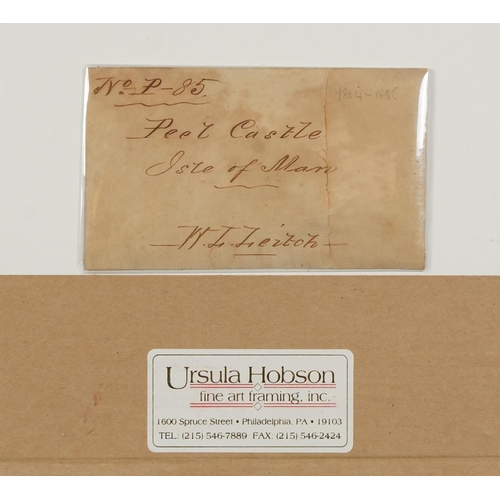 No. P-85.
Peel Castle
Isle of Man
W. L. Leitch
Ursula Hobson
fine art framing, inc.
1600 Spruce Street • Philadelphia, PA • 19103
TEL: (215) 546-7889 FAX: (215) 546-2424